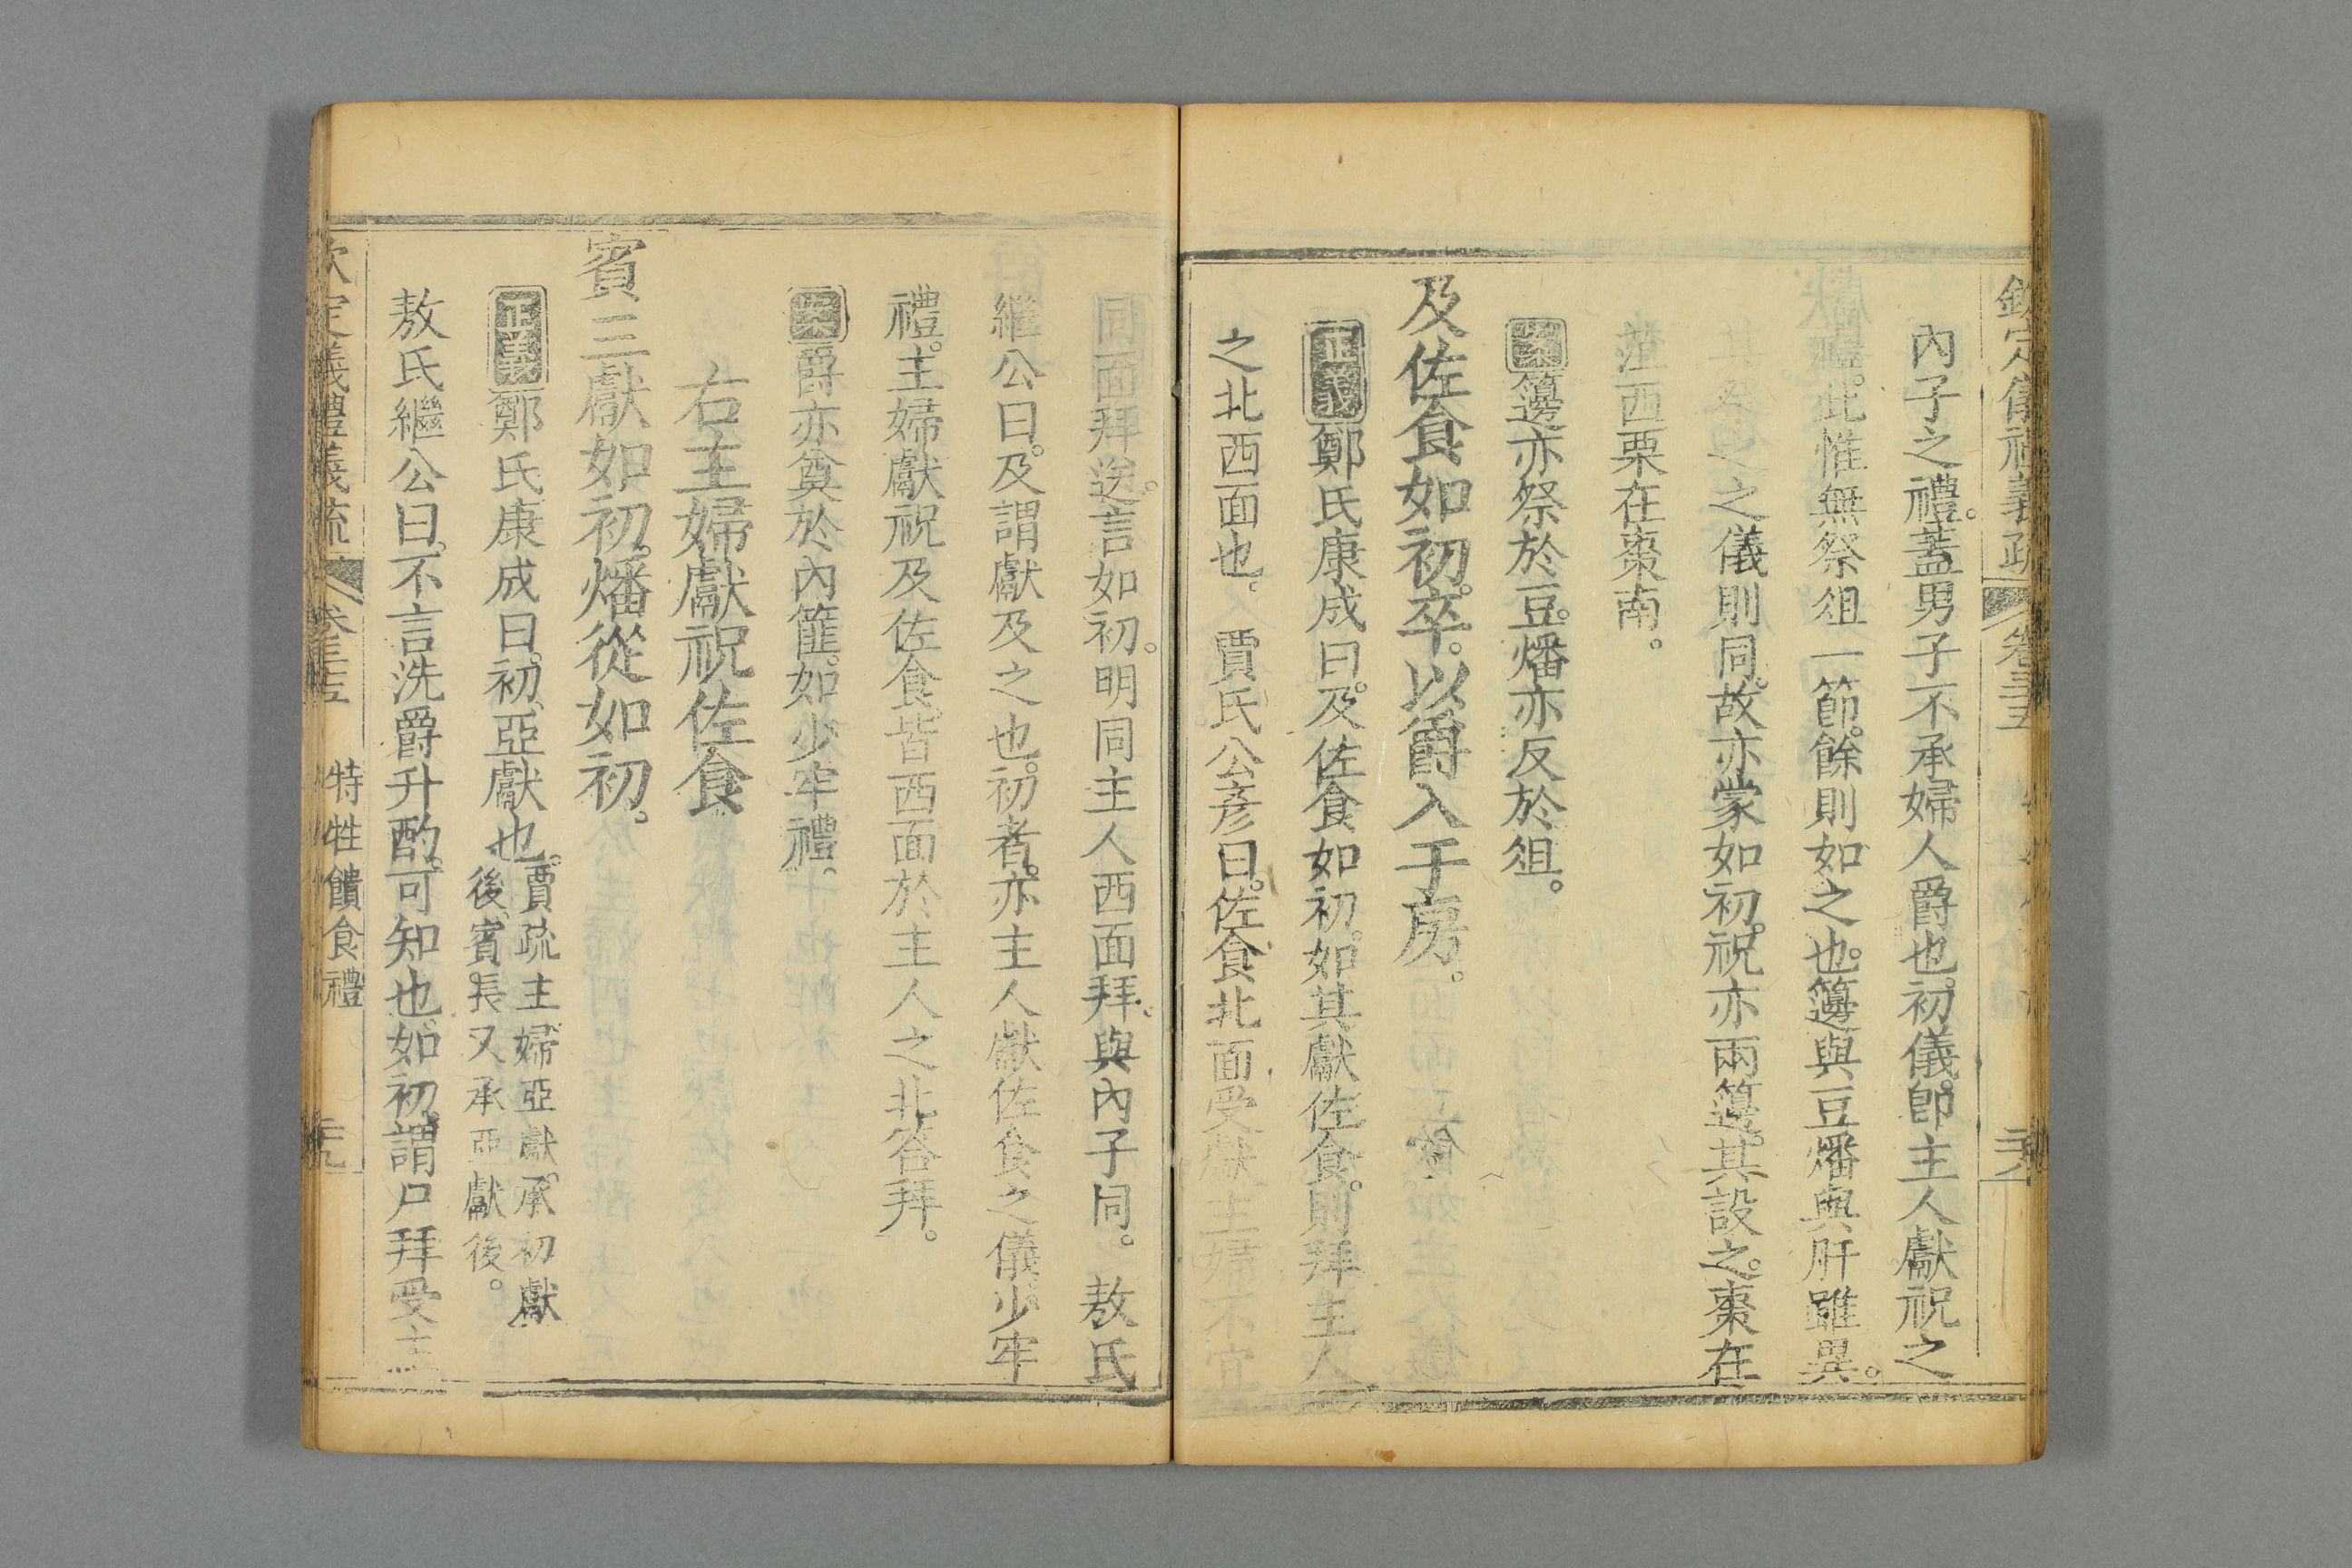 欽定儀禮義疏 卷三十五 二十八
內子之禮。蓋男子不承婦人爵也。初儀。卽主人獻祝之
獻儀。此惟無祭俎一節。餘則如之也。籩與豆燔與肝雖異。
之儀則同。故亦蒙如初。祝亦兩籩。其設之。棗在
菹西栗在棗南。
案籩亦祭於豆。燔亦反於俎。
及佐食如初。卒。以爵入于房。
正義鄭氏康成曰。及佐食如初。如其獻佐食。則拜主人
之北西面也。 賈氏公彥曰。佐食北面受獻主婦不宜
同面拜送。言如初。明同主人西面拜。與內子同。 敖氏
繼公曰。及謂獻及之也。初者。亦主人獻佐食之儀。少牢
禮。主婦獻祝及佐食。皆西面於主人之北答拜。
案爵亦奠於內篚。如少牢禮。
右主婦獻祝佐食
賓三獻如初。燔從如初。
正義鄭氏康成曰。初。亞獻也。賈疏主婦亞獻。承初獻
後。賓長又承亞獻後。
敖氏繼公曰。不言洗爵升酌。可知也。如初。謂尸拜受主
欽定儀禮義疏 卷三十五 特牲饋食禮 二十九